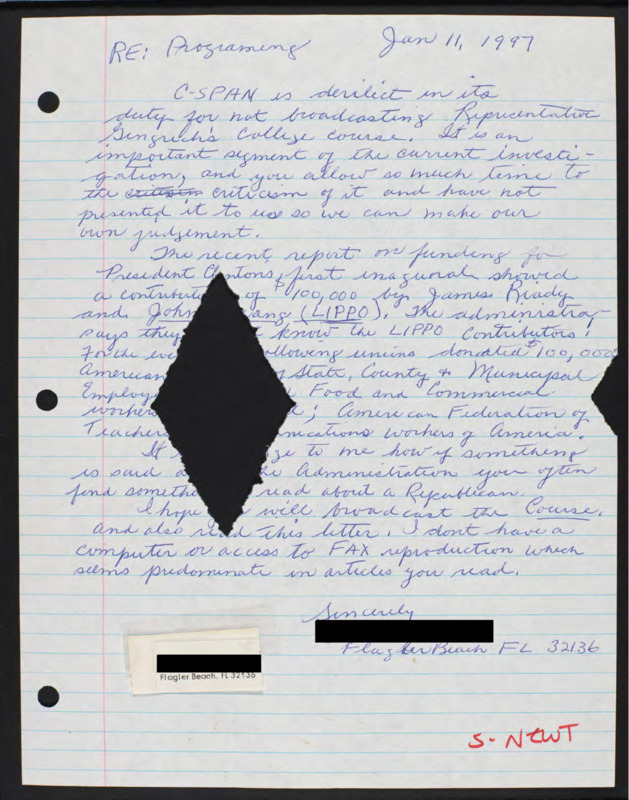 RE: Programing
Jan 11, 1997
C-SPAN is derilict in its
duty for not broadcasting Representative
Gingrich's College course. It is an
important segment of the current investi-
gation, and you allow so much time to
the criticism of it and have not
presented it to us so we can make our
own judgement.
The recent report on funding for
President Clintons, first inagural showed
a contribut of $100,000 by James Riady
and John ang (LIPPO). The administra-
says they know the LIPPO Contributors!
For the eve ollowing unions donated $100,000
American State, County & Municipal
Employ Food and Commercial
workers d; American Federation of
Teachers nications Workers of America.
It ge to me how if something
is said a he Administration you often
find someth read about a Republican.
I hope will broadcast the Course.
and also read this letter. I dont have a
computer or access to FAX reproduction which
seems predominate in articles you read.
Sincerely
Flagler Beach FL 32136
Flagler Beach, FL 32136
S-NEWT